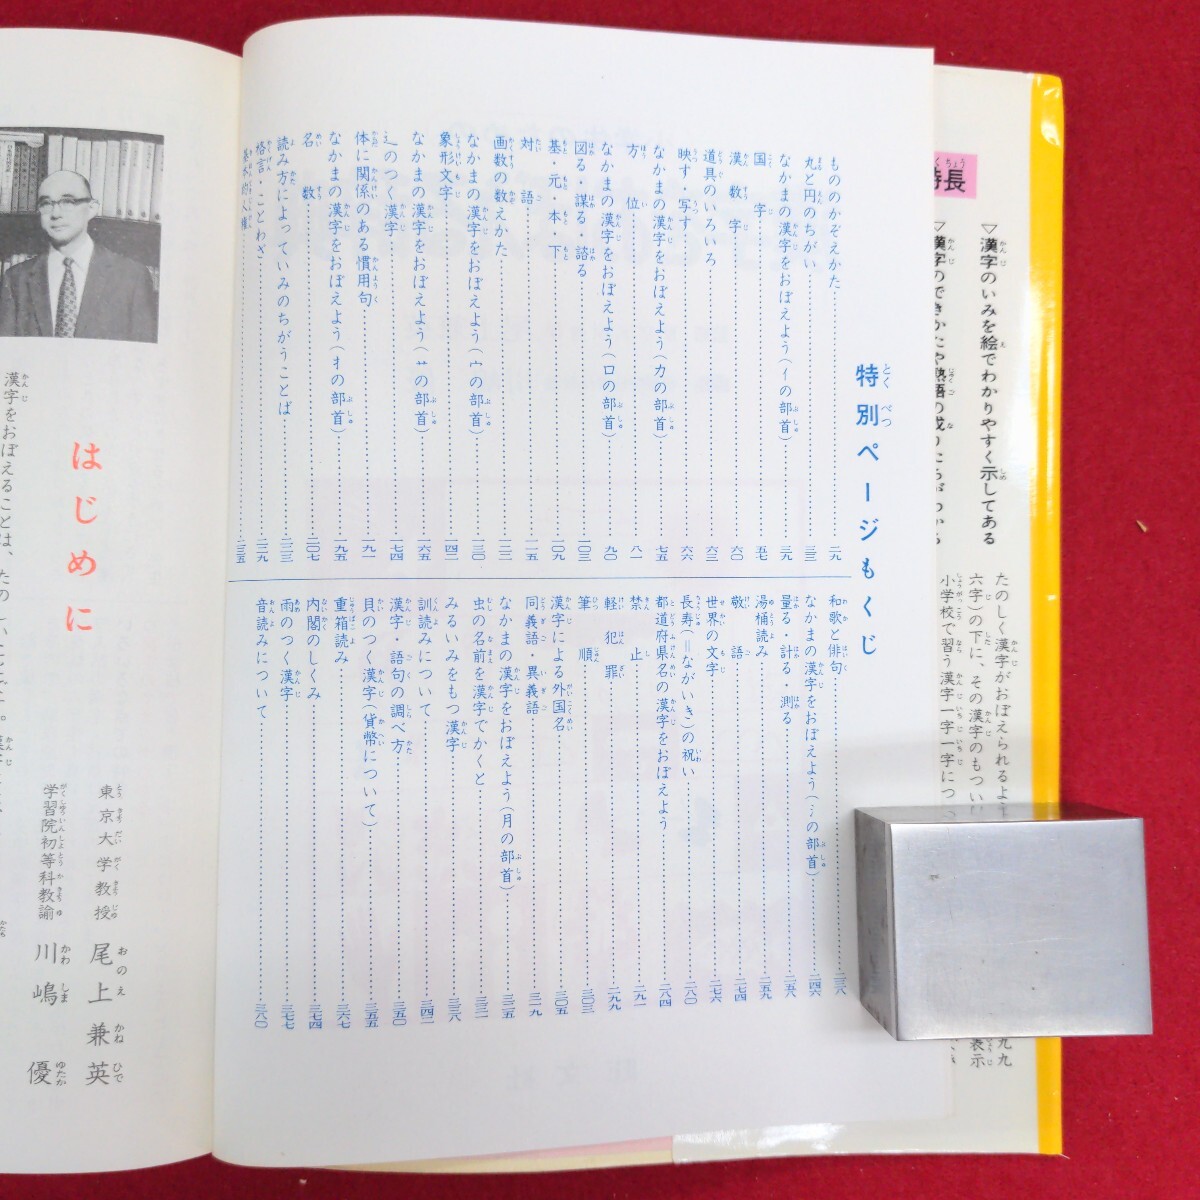 特長
▽漢字のいみを絵でわかりやすく示してある
▽漢字のできかたや熟語の成り
たのしく漢字がおぼえられるよ
六字)の下に、その漢字のもつい
小学校で習う漢字一字一字につ
特別ページもくじ
もののかぞえかた……二九
丸と円のちがい……三三
なかまの漢字をおぼえよう(亻の部首)……三九
国字……五七
漢数字……六〇
道具のいろいろ……六三
映す・写す……六六
なかまの漢字をおぼえよう(カの部首)……七五
方位……八一
なかまの漢字をおぼえよう(口の部首)……九〇
図る・謀る・諮る……一〇三
基・元・本・下……一〇九
対語……一一五
画数の数えかた……一二三
なかまの漢字をおぼえよう(宀の部首)……一三〇
象形文字……一四二
なかまの漢字をおぼえよう(艹の部首)……一六五
辶のつく漢字……一七四
体に関係のある慣用句……一九一
なかまの漢字をおぼえよう(扌の部首)……一九五
名数……二〇七
読み方によっていみのちがうことば……二二三
格言・ことわざ……二二九
……二三五
和歌と俳句……二三八
なかまの漢字をおぼえよう(氵の部首)……二四六
量る・計る・測る……二五八
湯桶読み……二五九
敬語……二七四
世界の文字……二七六
長寿(=ながいき)の祝い……二八〇
都道府県名の漢字をおぼえよう……二八四
禁止……二九一
軽犯罪……二九九
筆順……三〇三
漢字による外国名……三〇五
同義語・異義語……三一九
なかまの漢字をおぼえよう(月の部首)……三二五
虫の名前を漢字でかくと……三三一
みるいみをもつ漢字……三三八
訓読みについて……三四二
漢字・語句の調べ方……三五〇
貝のつく漢字(貨幣について)……三五五
重箱読み……三六七
内閣のしくみ……三七四
雨のつく漢字……三七七
音読みについて……三八〇
はじめに
漢字をおぼえることは、たの
東京大学教授 尾上兼英
学習院初等科教諭 川嶋優